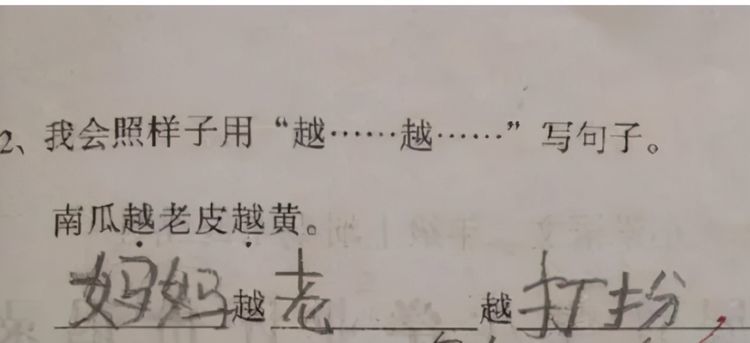 2、我会照样子用“越……越……”写句子。
南瓜越老皮越黄。
妈妈越老越打扮